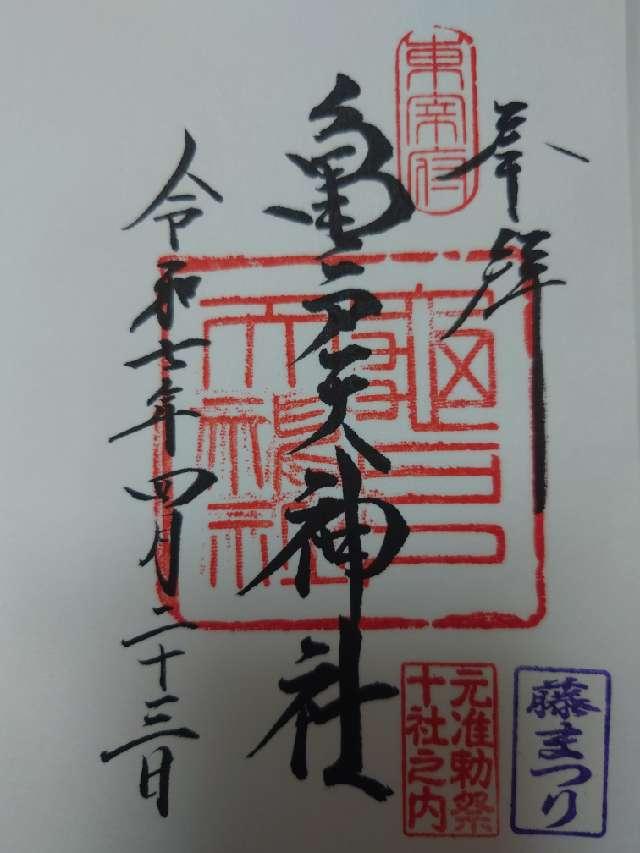 奉拝
東宰府
亀戸天神社
令和七年四月二十三日
元准勅祭
十社之内
藤まつり